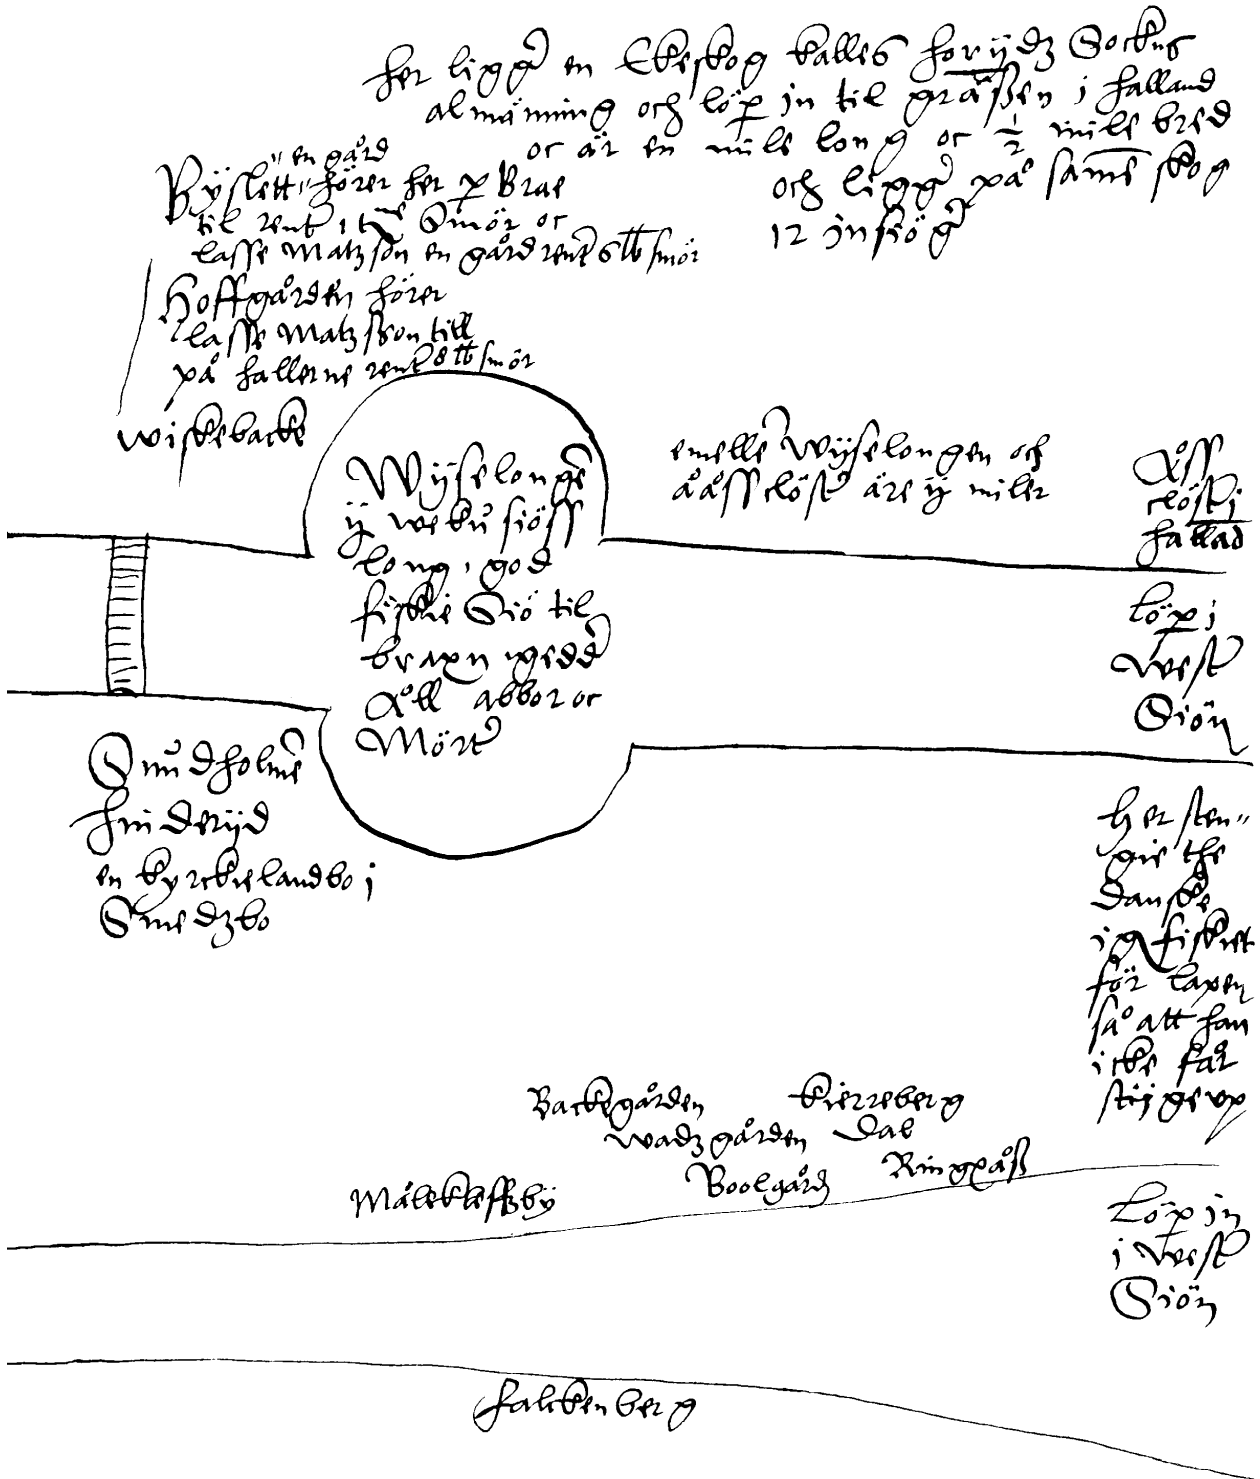 her ligg̃ en Ekeskog kalles horÿdz Sockns
almäning och löp in til gräßen i halland
oc är en mile long oc ½ mile bred
och ligg̃ på samē skog
12 insiö g̃
en gård
Bÿslett hörer her p Brae
til rent̃ 1 tn̄e Smör oc
lasse Matzson en gård rent̃ 6 lb smör
Hoffgården hörer
lasse Matzßon till
på hallerne rent̃ 8 lb smör
wiskebacke
Wÿselongẽ
ÿ weku siöss
long, god
fiskie Siö til
braxn gedd̃
Åll abbor oc
Mört̃
emellẽ Wÿselongen och
ååss clöst̃ äre ÿ miler
Åss
clöst̃ i
hallad
löp i
West̃
Siön
Smudholmẽ
hinderÿd
en kyrckielandbo i
Smedzbo
her sten„
gie the
danske
igfisket
för laxen
så att han
icke får
stijge vp
Backegården
kierreberg
wadzgården
Dal
Boolgård
Ringpåß
Målekleffzbÿ
Löp in
i West̃
Siön
falckenberg